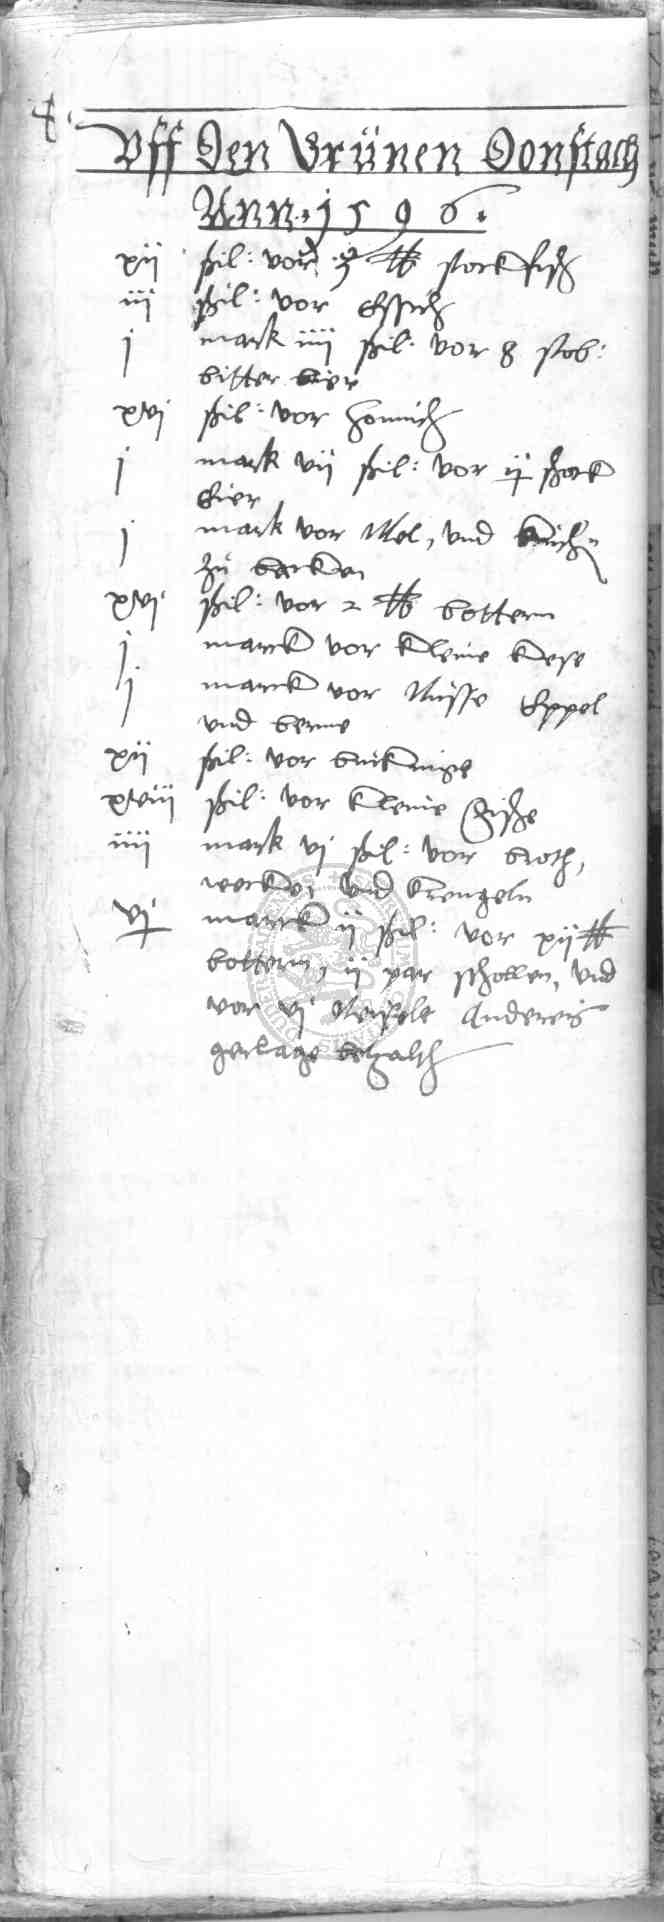 Vff Den Grünen Donstach
Ann. 1596.
xij ßil: vor 3 ℔ stockfisch
iij ßil: vor Essich
j mark iiij ßil: vor 8 stob:
bitter bier
xvj ßil: vor honnich
j mark vij ßil: vor ij schock
Eier
j mark vor Mel, vnd
zu backen
xvj ßil: vor 2 ℔ bottern
j marck vor kleine kese
j marck vor Nüsse Eppel
vnd berne
xij ßil: vor buckinge
xviij ßil: vor kleine Fische
iiij mark vj ßil: vor broth,
wecken, vnd krengeln
vj marck ij ßil: vor xij ℔
bottern, ij par schollen, vnd
vor vj Anderen
gerlage bezalth